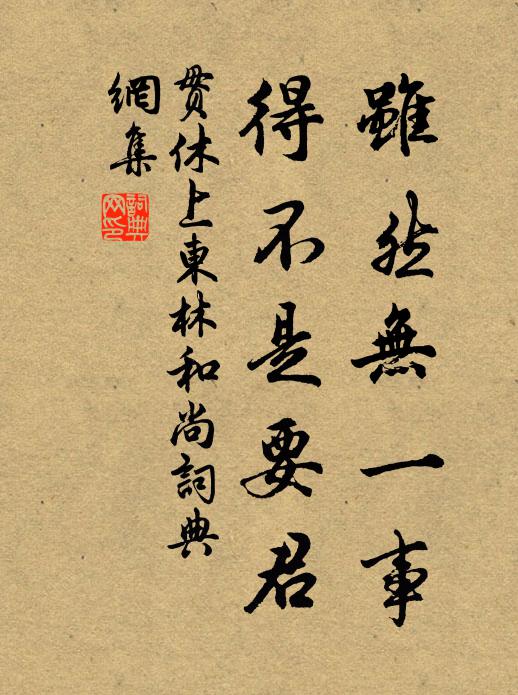 雖然無一事
得不是要君
貫休上東林和尚詞典
網集
詞典
网印